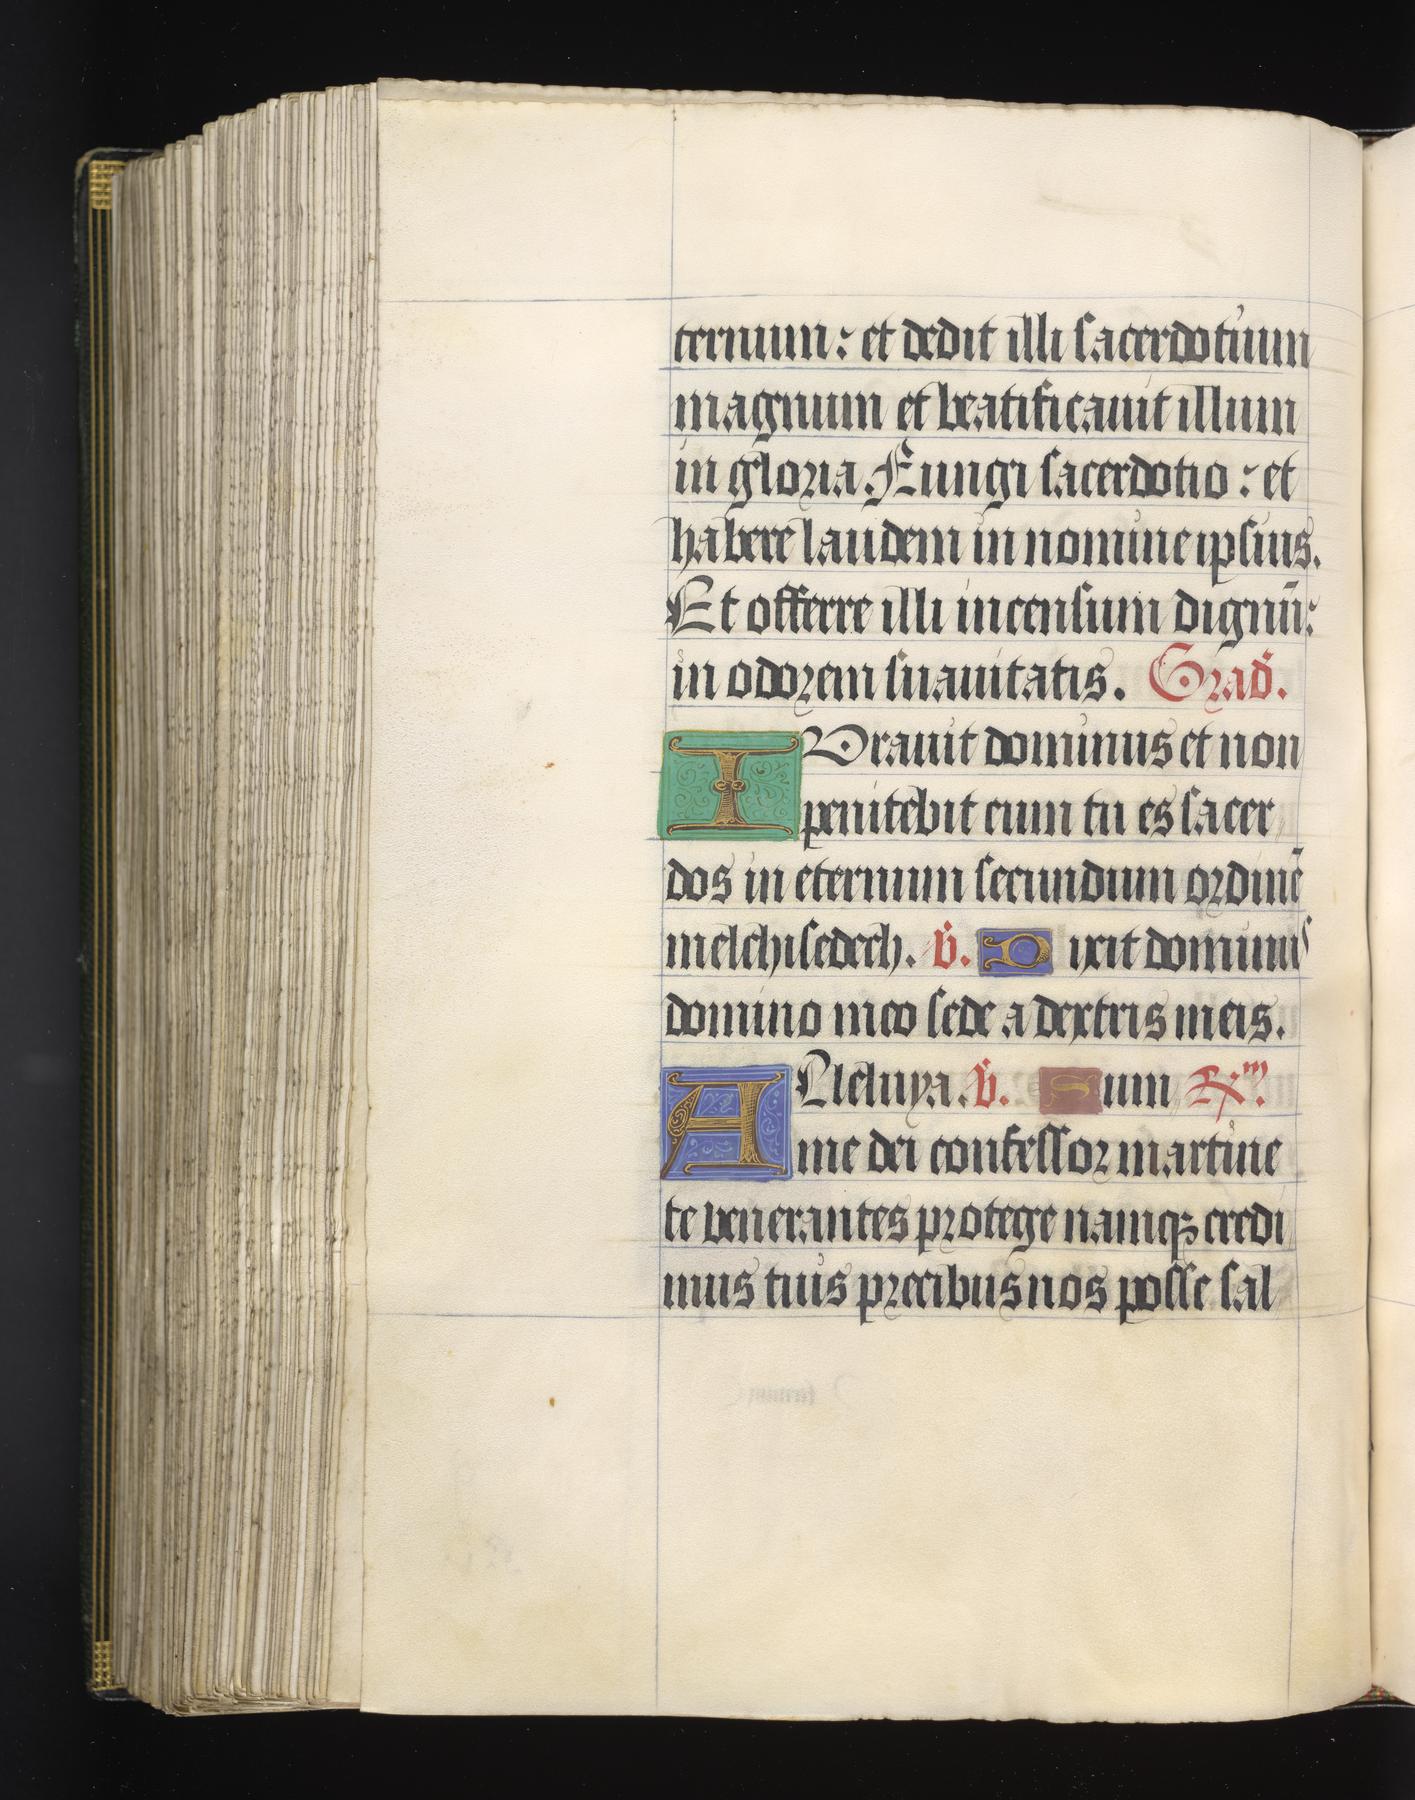 ternum: et dedit illi sacerdotium
magnum et beatificauit illum
in gloria. Fungi sacerdotio: et
habere laudem in nomine ipsius.
Et offerre illi incensum dignū:
in odorem suauitatis. Grad̄.
IUrauit dominus et non
penitebit eum tu es sacer
dos in eternum secundum ordinē
melchisedech. v̄. Dixit dominus
domino meo sede a dextris meis.
ALleluya. v̄. Sum R̄m.
me dei confessor martine
te venerantes protege namqꝫ credi
mus tuis precibus nos posse sal